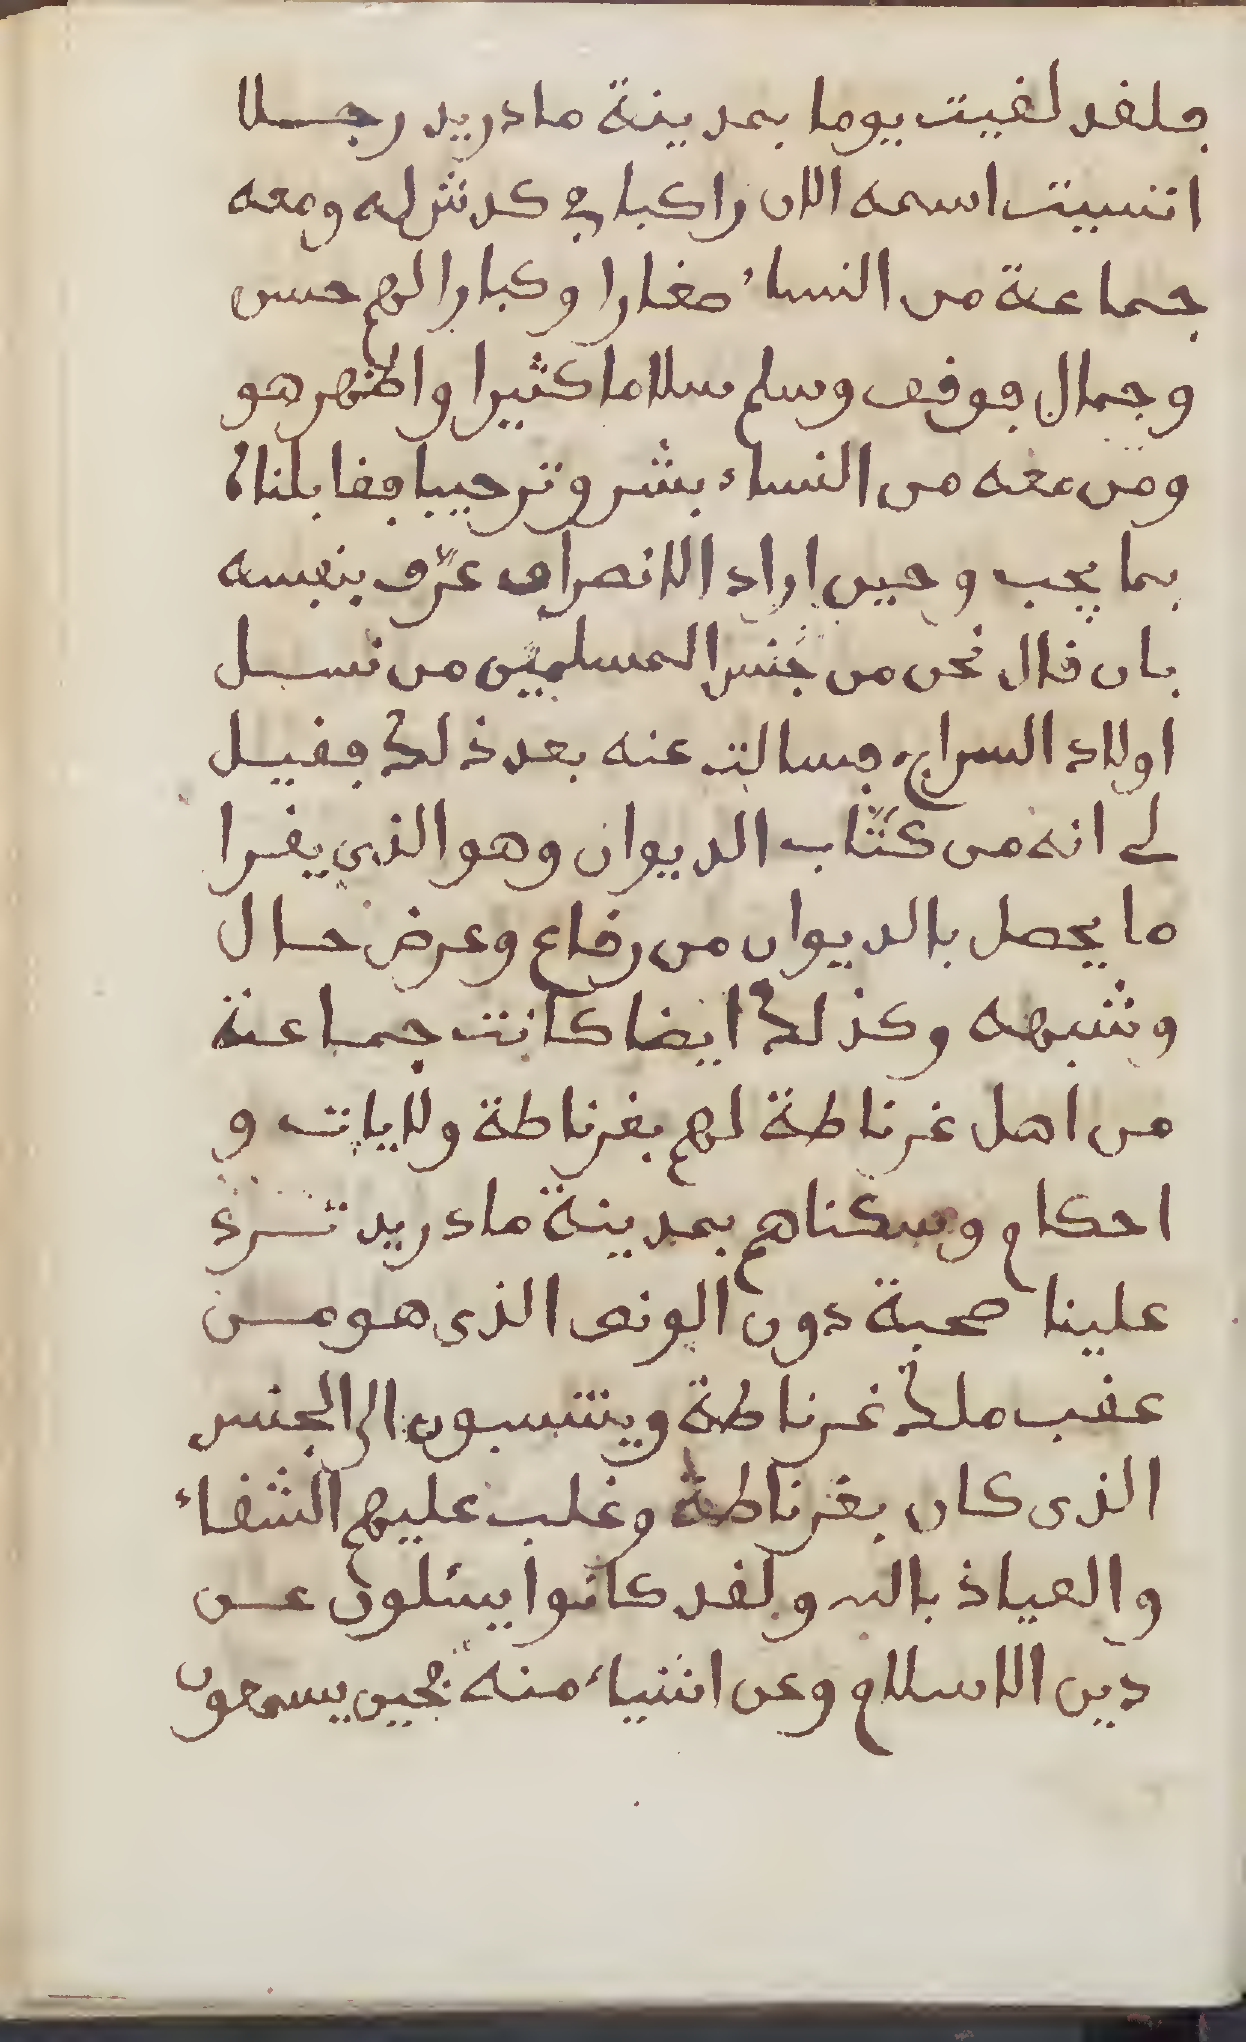 فلقد لقيت يوما بمدينة مادريد رجلا
انسيت اسمه الان راكبا في كدش له ومعه
جماعة من النساء صغارا وكبارا لهم حسن
وجمال فوقف وسلم سلاما كثيرا واظهر هو
ومن معه من النساء بشر وترحيبا فقابلناه
بما يجب وحين اراد الانصراف عرّف بنفسه
بان قال نحن من جنس المسلمين من نسل
اولاد السراج فسالت عنه بعد ذلك فقيل
لي انه من كتّاب الديوان وهو الذي يقرا
ما يحصل بالديوان من رقاع وعرض حال
وشبهه وكذلك ايضا كانت جماعة
من اهل غرناطة لهم بغرناطة ولايات و
احكام وسكناهم بمدينة مادريد ترد
علينا صحبة دون الونص الذي هو من
عقب ملك غرناطة وينتسبون الى الجنس
الذي كان بغرناطة وغلب عليهم الشقاء
والعياذ بالله ولقد كانوا يسئلون عن
دين الاسلام وعن اشياء منه فحين يسمعون